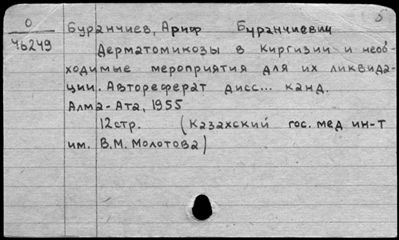 О
46249
Буранчиев, Ариф Буранчиевич
Дерматомикозы в Киргизии и необ-
ходимые мероприятия для их ликвида-
ции. Автореферат дисс... канд.
Алма-Ата, 1955
12стр. (Казахский гос. мед ин-т
им. В.М. Молотова)